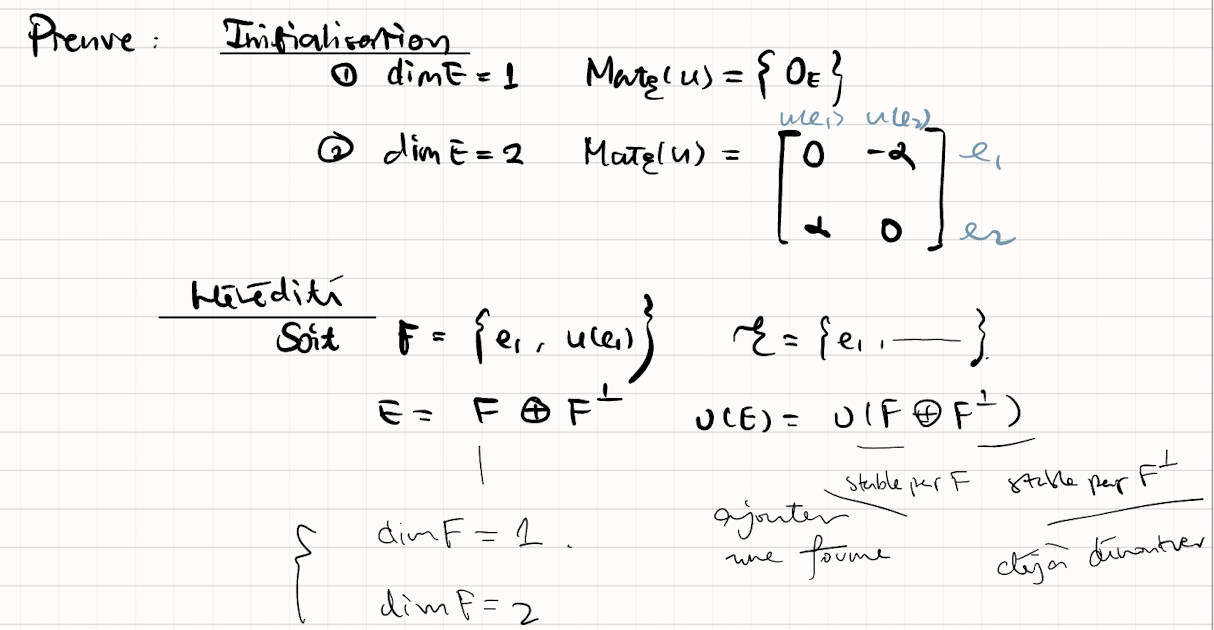 Preuve : Initialisation
① dim E = 1 Mat_ξ(u) = { 0_E }
u(e₁) u(e₂)
② dim E = 2 Mat_ξ(u) = [ 0 -α ] e₁
[ α 0 ] e₂
Hérédité
Soit F = { e₁, u(e₁) } ξ = { e₁, —— }.
E = F ⊕ F^⊥ U(E) = U(F ⊕ F^⊥)
stable par F stable par F^⊥
ajouter
une forme
déjà démontrer
{ dim F = 1 .
dim F = 2